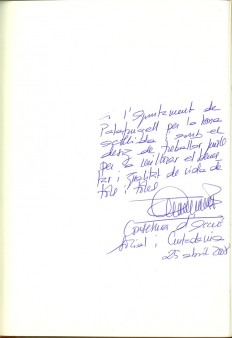 A l'Ajuntament de
Palafrugell per la bona
acollida i amb el
desig de treballar junts
per la millorar el benes
tar i qualitat de vida de
tots i totes
Consellera d'Acció
Social i Ciutadania
25 abril 2008